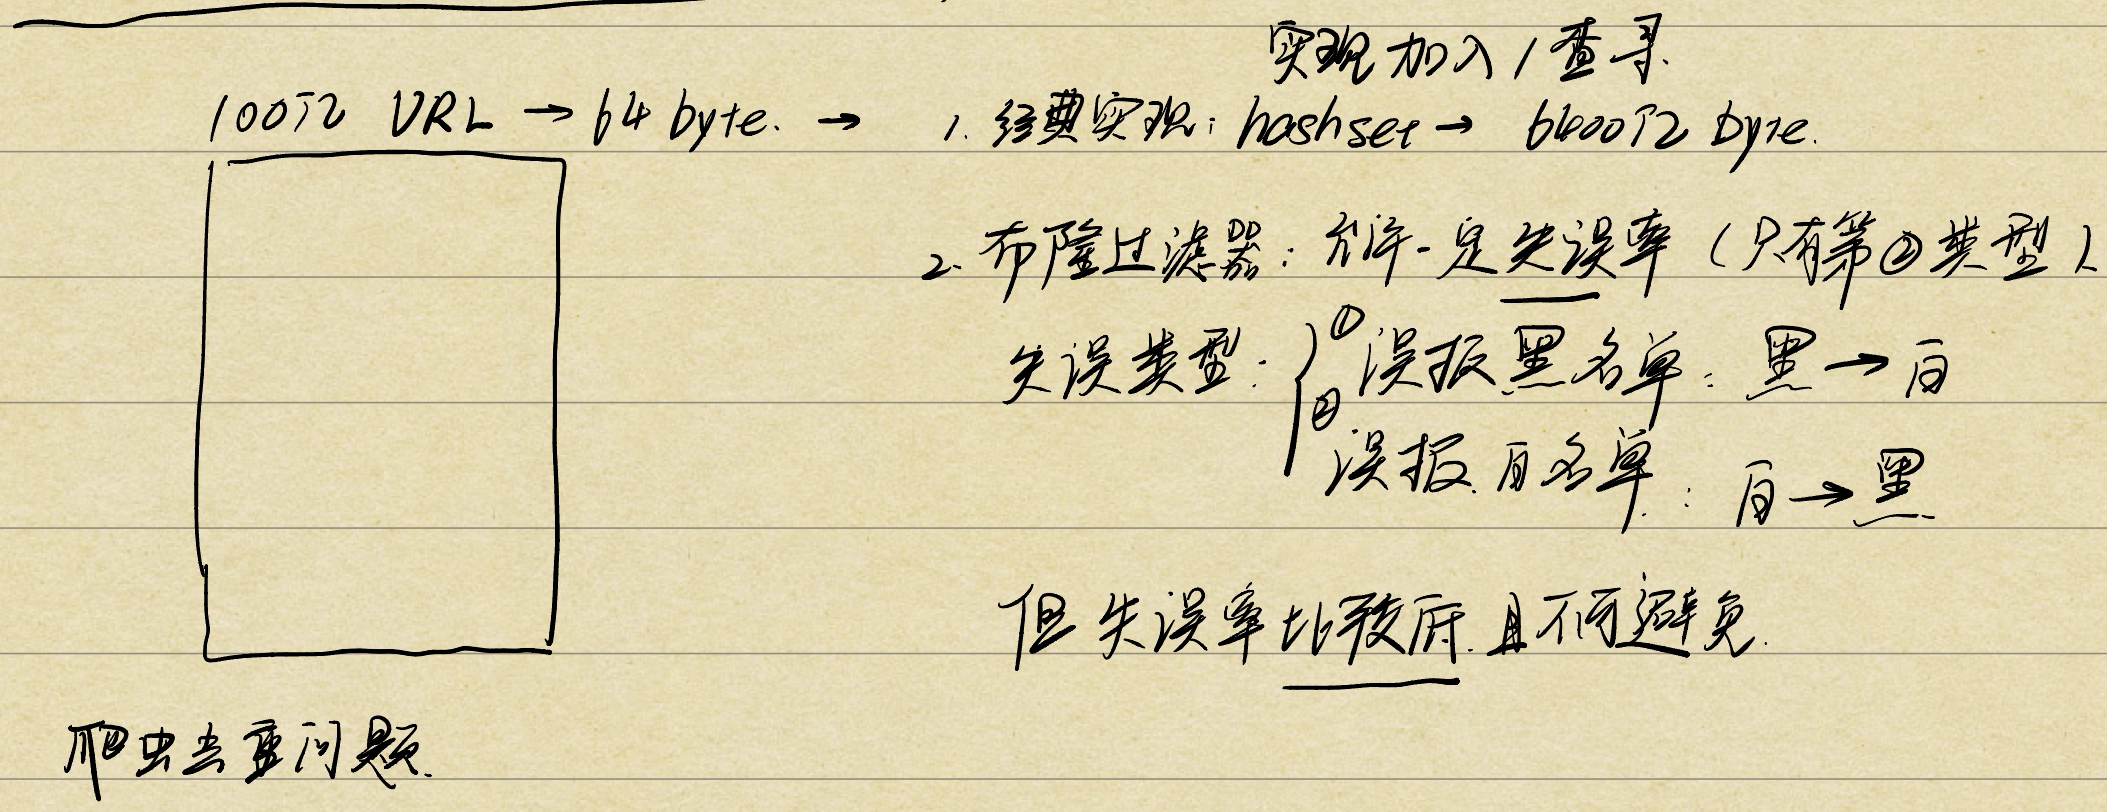 实现加入/查寻.
100亿 URL → 64 byte. → 1. 经典实现: hashset → 6400亿 byte.
2. 布隆过滤器: 允许一定失误率 (只有第②类型)
失误类型: { ① 误报黑名单: 黑 → 白
② 误报白名单: 白 → 黑
但失误率比较低且不可避免.
爬虫去重问题.